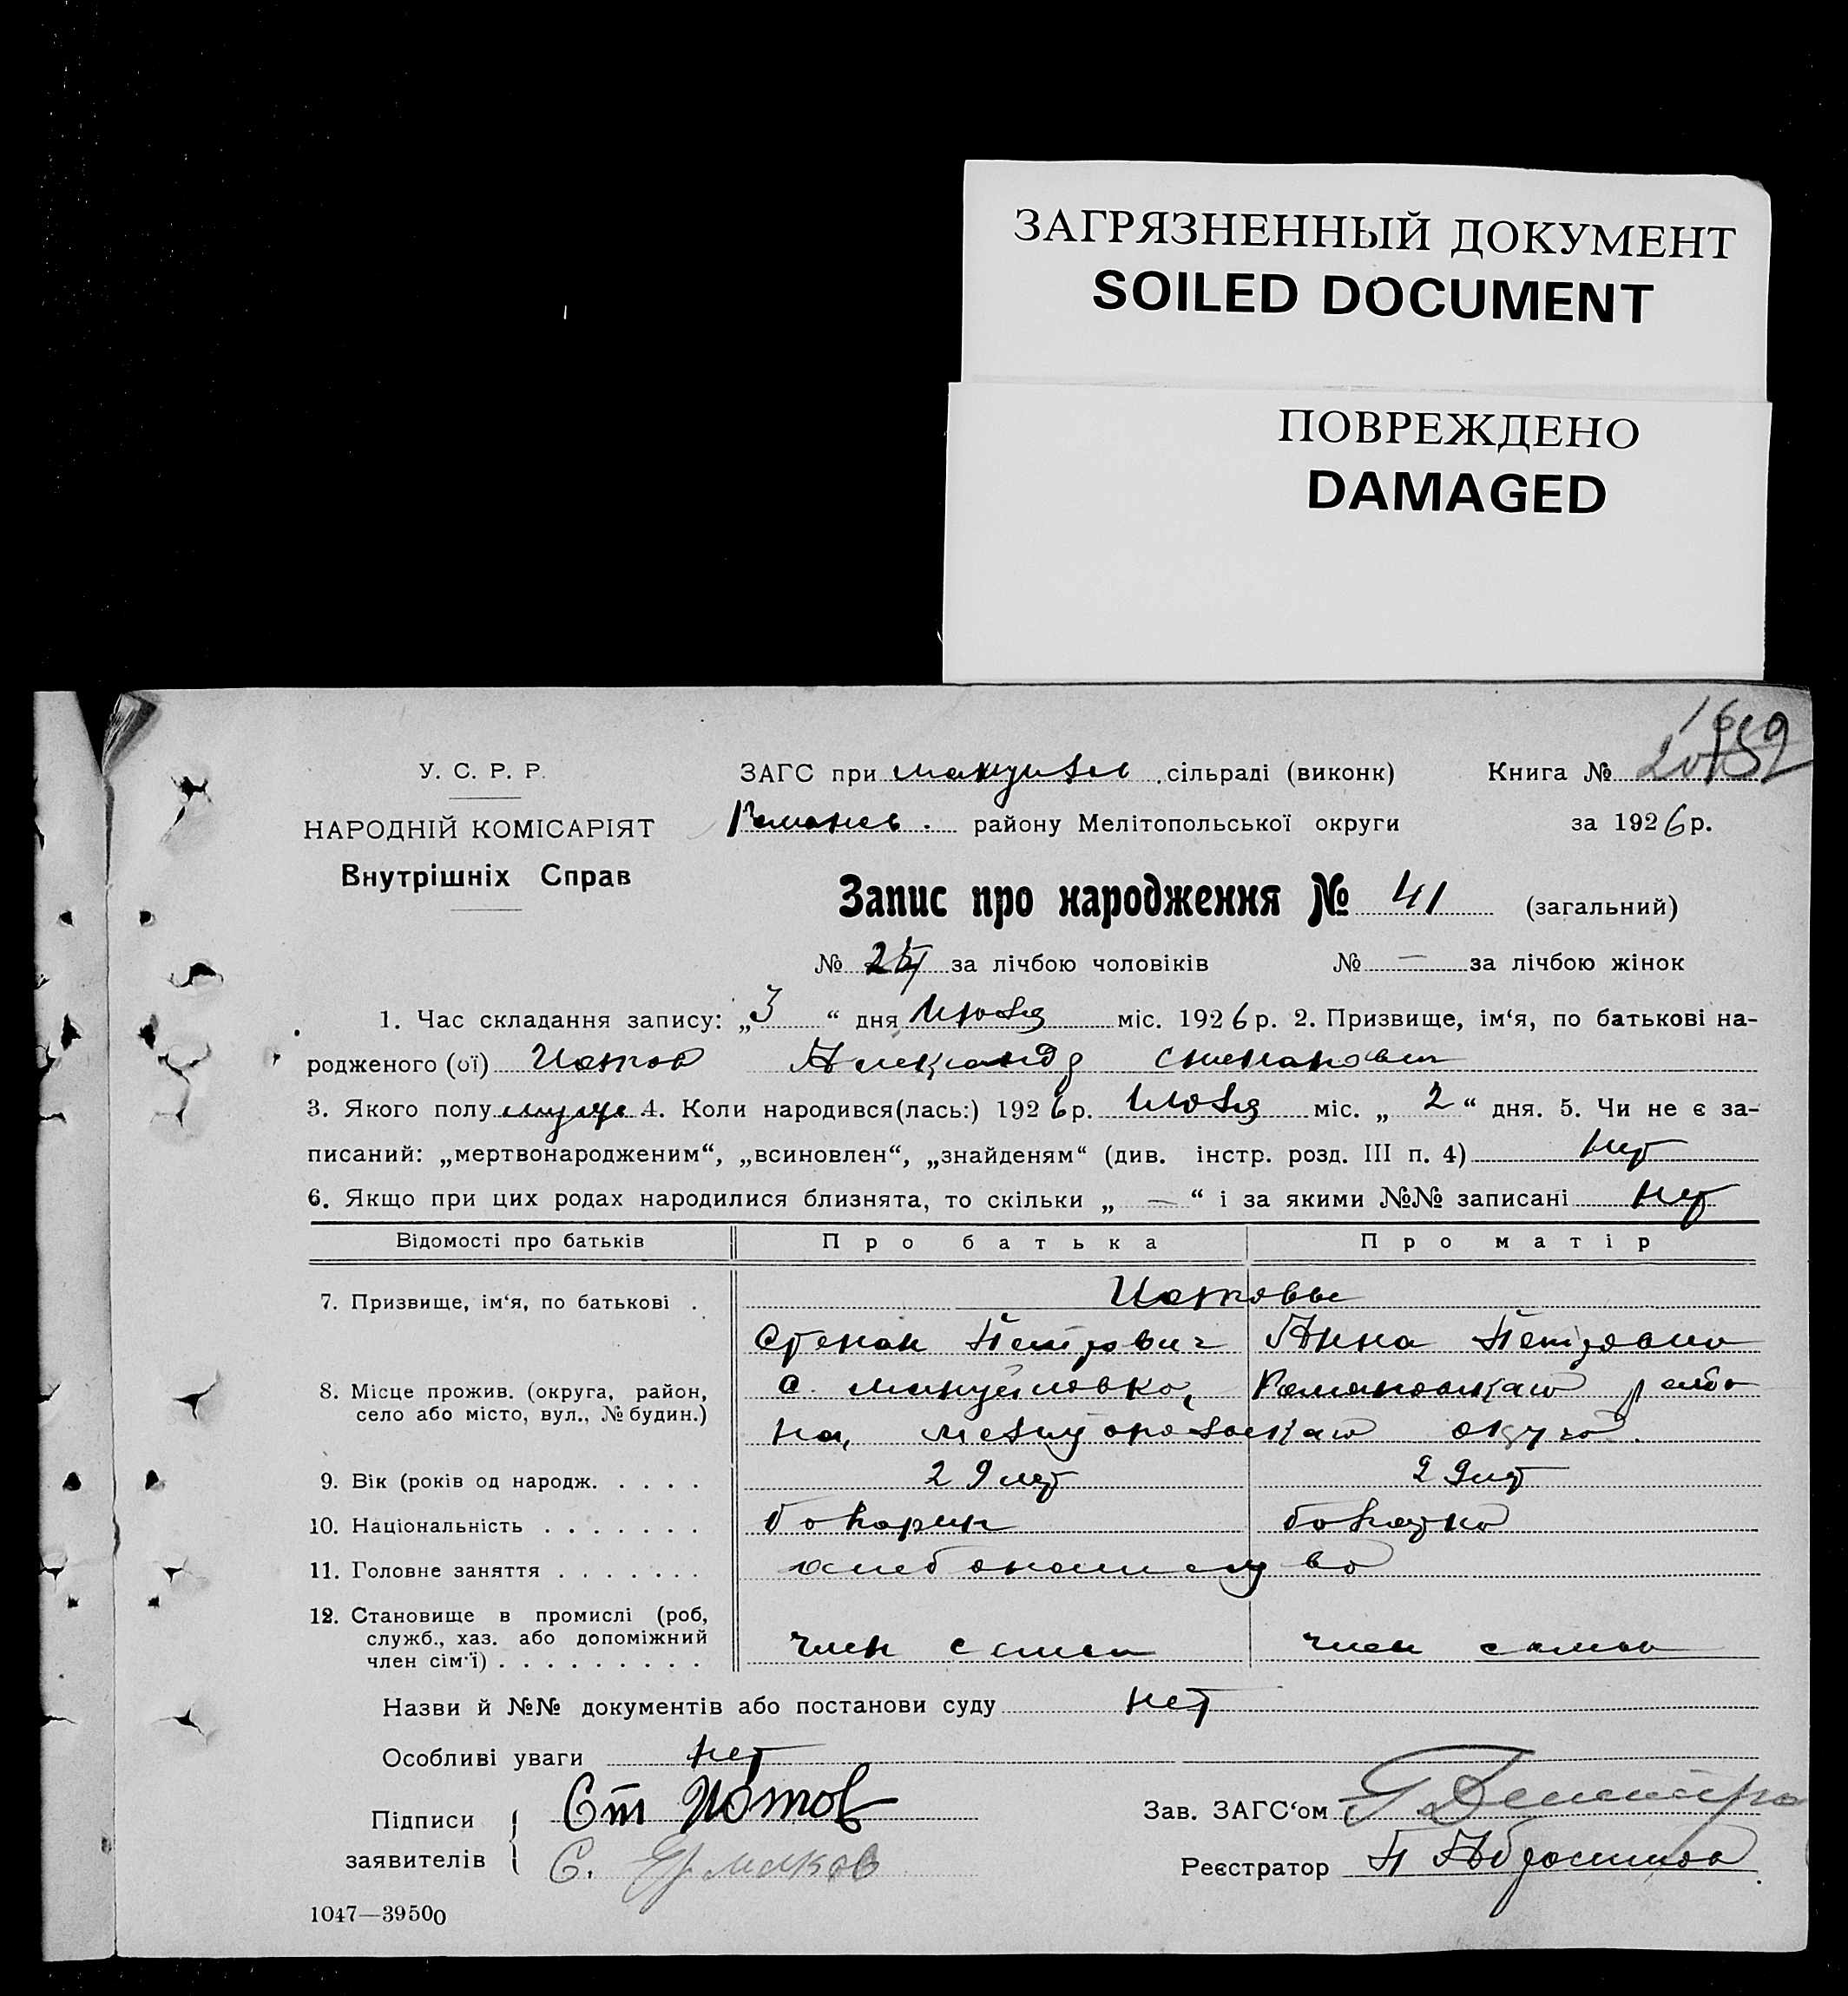 ЗАГРЯЗНЕННЫЙ ДОКУМЕНТ
SOILED DOCUMENT
ПОВРЕЖДЕНО
DAMAGED
У. С. Р. Р.
НАРОДНІЙ КОМІСАРІЯТ
Внутрішніх Справ
ЗАГС при мануйлов сільраді (виконк) Книга №
Романов. району Мелітопольської округи за 1926 р.
Запис про народження № 41 (загальний)
№ за лічбою чоловіків № — за лічбою жінок
1. Час складання запису: „3“ дня Июля міс. 1926 р. 2. Призвище, ім‘я, по батькові на-
родженого (ої) Иотов Александр Степанович
3. Якого полу 4. Коли народився(лась:) 1926 р. Июля міс. „2“ дня. 5. Чи не є за-
писаний: „мертвонародженим“, „всиновлен“, „знайденям“ (див. інстр. розд. III п. 4) нет
6. Якщо при цих родах народилися близнята, то скільки „—“ і за якими №№ записані нет
Відомості про батьків Про батька Про матір
7. Призвище, ім‘я, по батькові . Иотовы
Степан Петрович Анна Петровна
8. Місце прожив. (округа, район, с. Мануйловка, Романовская райо
село або місто, вул., № будин.) на, округа.
9. Вік (років од народж. . . . . 29 лет 29 лет
10. Національність . . . . . . . болгарин болгарка
11. Головне заняття . . . . . . . хлебопашество
12. Становище в промислі (роб,
служб., хаз. або допоміжний
член сім‘ї) . . . . . . . . . член семьи член семьи
Назви й №№ документів або постанови суду нет
Особливі уваги нет
Підписи заявителів
Ст Иотов
С. Ермаков
Зав. ЗАГС‘ом
Реєстратор П Абросимов
1047—39500